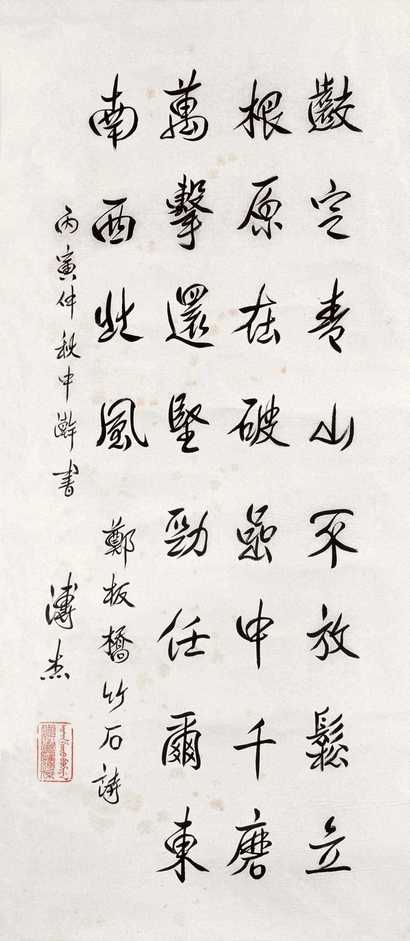 齩定青山不放鬆立
根原在破嵒中千磨
萬擊還堅勁任爾東
南西北風 鄭板橋竹石詩
丙寅仲秋中澣書 溥杰